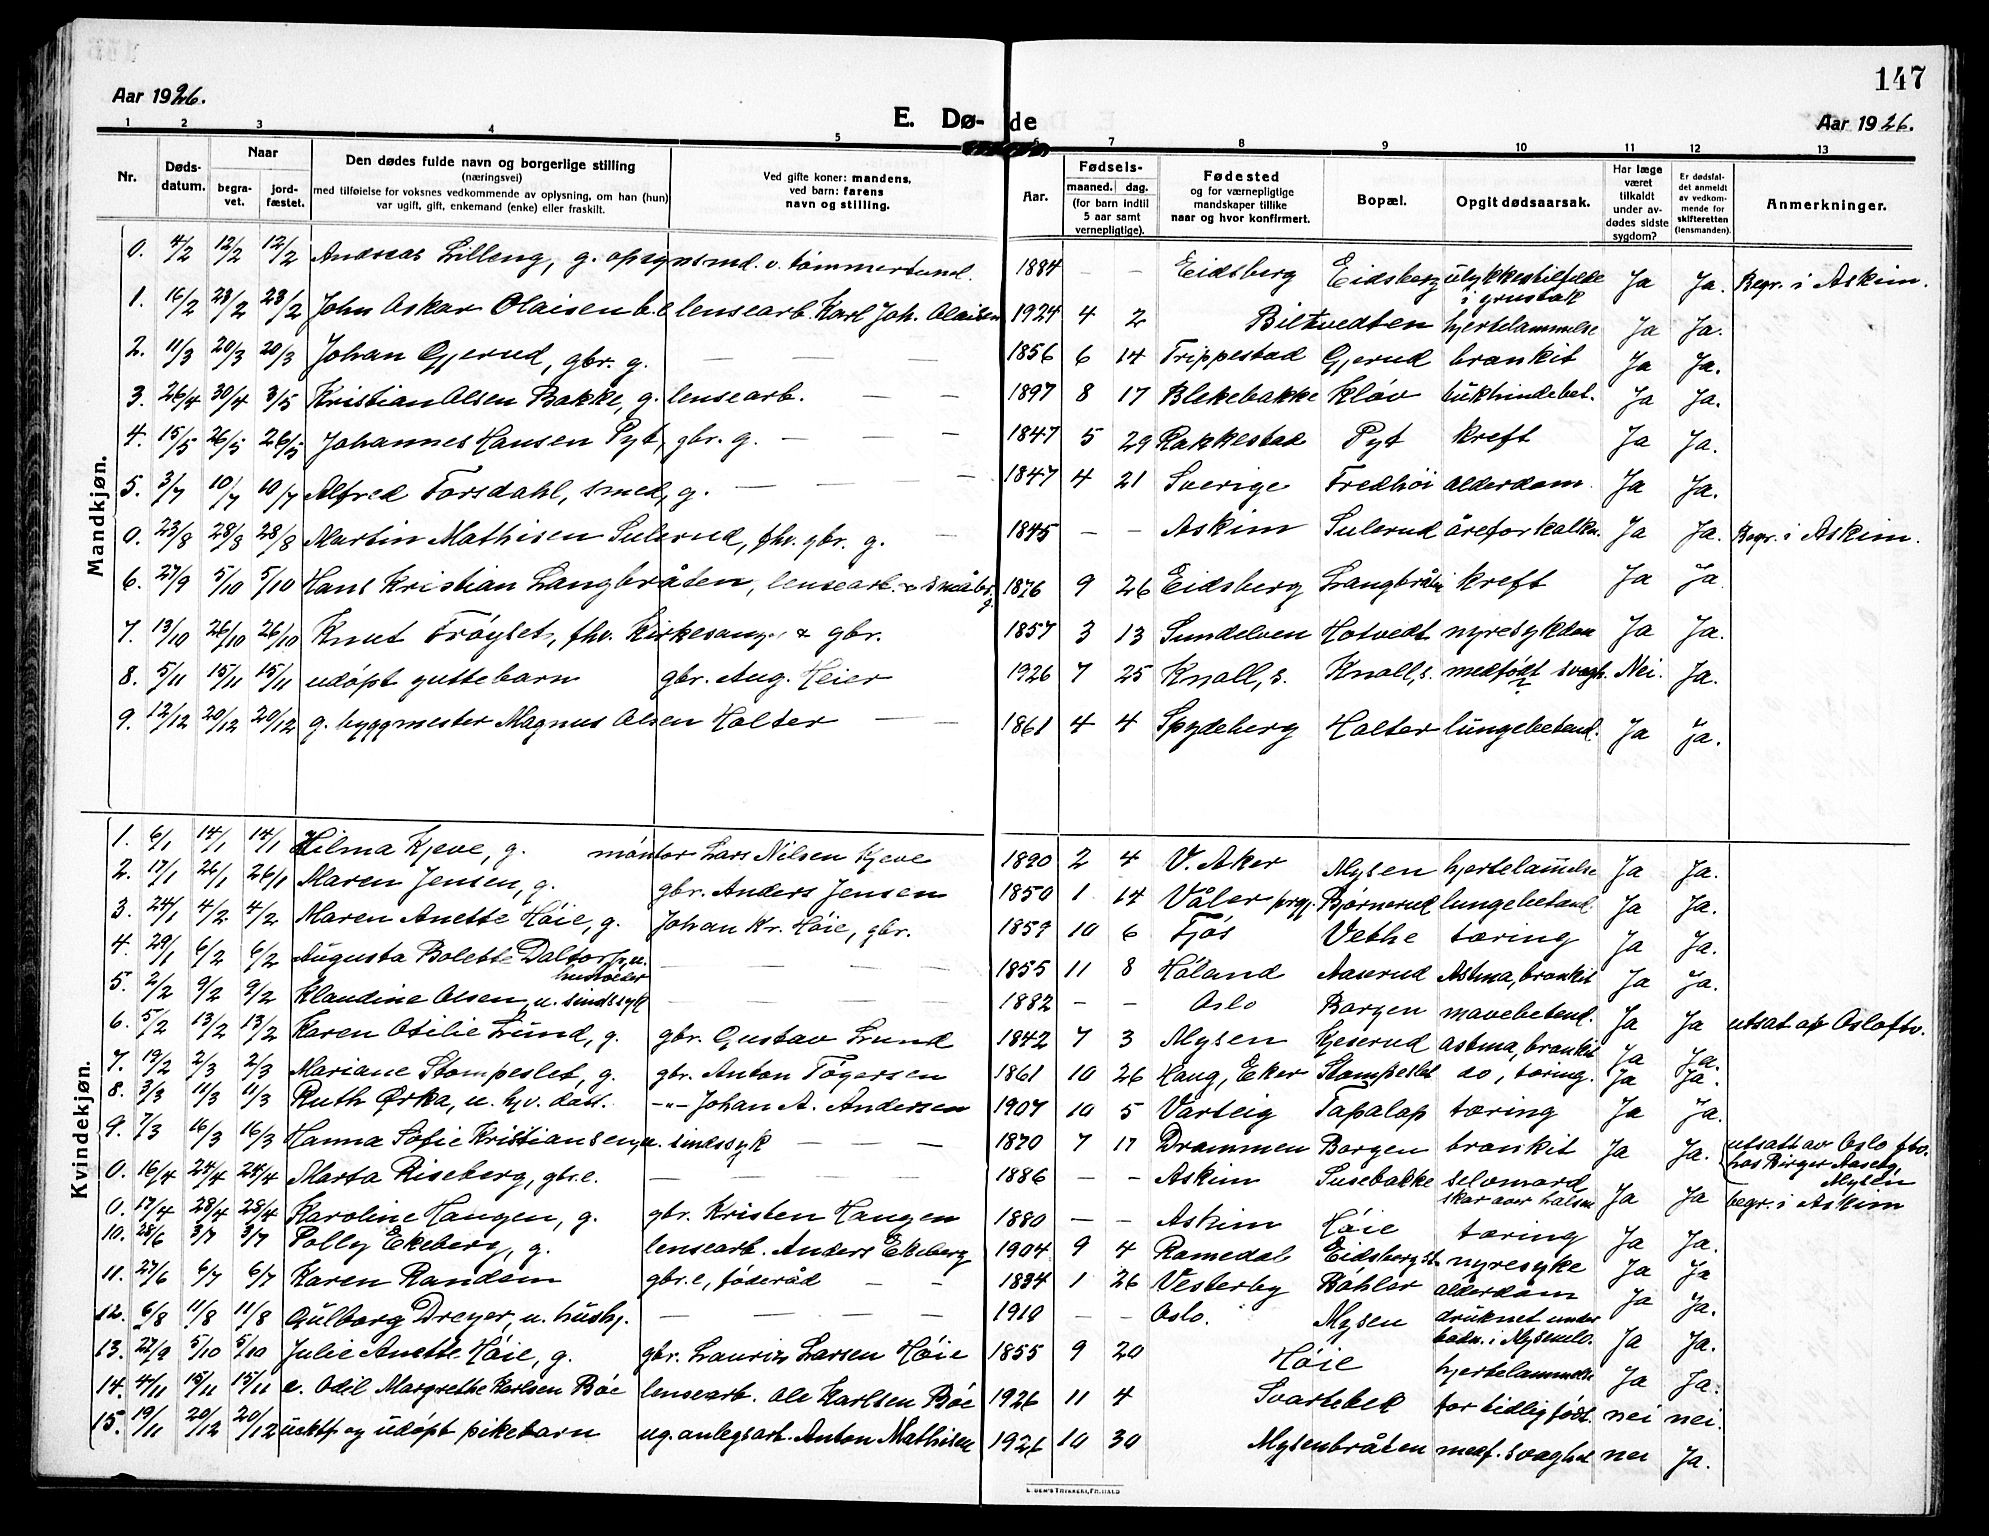 147
Aar 1926.
E. Dø- de
Aar 1926.
1 2 3 4 5 6 7 8 9 10 11 12 13
Nr. Døds-datum. Naar begra-vet. jord-fæstet. Den dødes fulde navn og borgerlige stilling (næringsvei) med tilføielse for voksnes vedkommende av oplysning, om han (hun) var ugift, gift, enkemand (enke) eller fraskilt. Ved gifte koner: mandens, ved barn: farens navn og stilling. Aar. Fødsels- maaned. dag. (for barn indtil 5 aar samt vernepligtige). Fødested og for værnepligtige mandskaper tillike naar og hvor konfirmert. Bopæl. Opgit dødsaarsak. Har læge været tilkaldt under av-dødes sidste sygdom? Er dødsfal-det anmeldt av vedkom-mende for skifteretten (lensmanden). Anmerkninger.
Mandkjøn.
0. 4/2 12/2 12/2 Andreas Lilleng, g. opsynsmd. v. tømmertunnl. 1884 – – Eidsberg Eidsberg ulykkestilfelde i grustak Ja Ja. Begr. i Askim.
1. 16/2 23/2 23/2 John Oskar Olaisen b.e. lensearb. Karl Joh. Olaisen 1924 4 2 Biltvedten hjertelammelse Ja Ja.
2. 11/3 20/3 20/3 Johan Gjerud, gbr. g. — — — 1856 6 14 Trippestad Gjerud bronkit Ja Ja.
3. 26/4 30/4 3/5 Kristian Olsen Bakke, g. lensearb. — — 1897 8 17 Blekebakke Kløv bukhindebet. Ja Ja.
4. 15/5 26/5 26/5 Johannes Hansen Pyt, gbr. g. — — — 1847 5 29 Rakkestad Pyt kreft Ja Ja.
5. 3/7 10/7 10/7 Alfred Torsdahl, smed, g. — — — 1847 4 21 Sverige Fredhøi alderdom. Ja Ja.
0. 23/8 28/8 28/8 Martin Mathisen Sulerud, fhv. gbr. g. — 1845 – – Askim Sulerud åreforkalkn. Ja Ja. Begr. i Askim.
6. 27/9 5/10 5/10 Hans Kristian Langbråten, lensearb. & småbr. g. 1876 9 26 Eidsberg Langbråten kreft Ja Ja
7. 13/10 26/10 26/10 Knut Frøyset, fhv. Kirkesanger & gbr. 1857 3 13 Sundelven Hotvedt nyresykdom Ja Ja.
8. 5/11 15/11 15/11 udøpt guttebarn gbr. Aug. Heier 1926 7 25 Knoll, s. Knoll, s. medfødt svagh. Nei. Ja.
9. 12/12 20/12 20/12 g. byggmester Magnus Olsen Holter — — 1861 4 4 Spydeberg Holter lungebetend. Ja Ja.
Kvindekjøn.
1. 6/1 14/1 14/1 Hilma Kjeve, g. montør Lars Nilsen Kjeve 1890 2 4 V. Aker Mysen hjertelammelse Ja Ja.
2. 17/1 26/1 26/1 Maren Jensen, g. gbr. Anders Jensen 1850 1 14 Våler prgj. Bjørnerud lungebetænd. Ja Ja.
3. 24/1 4/2 4/2 Maren Anette Høie, g. Johan Kr. Høie, gbr. 1859 10 6 Fjøs Vethe tæring Ja Ja.
4. 29/1 6/2 6/2 Augusta Bolette Daltorp, u. husholder — — — 1855 11 8 Høland Aaserud Astma, bronkit Ja Ja.
5. 2/2 9/2 9/2 Klaudine Olsen, u. sindssyk — — — 1882 – – Oslo Borgen mavebetend. Ja Ja utsat av Oslo ftv.
6. 5/2 13/2 13/2 Karen Otilie Lund, g. gbr. Gustav Lund 1842 7 3 Mysen Kjeserud astma, bronkit Ja Ja.
7. 19/2 2/3 2/3 Mariane Stompeslet, g. gbr. Anton Togersen 1861 10 26 Haug, Eker Stompeslet do, tæring. Ja Ja.
8. 3/3 11/3 11/3 Ruth Ørka, u. hjv. datt. -"- Johan A. Andersen 1907 10 5 Varteig Tapalap tæring Ja Ja.
9. 7/3 16/3 16/3 Hanna Sofie Kristiansen, u. sindssyk — — — 1870 7 17 Drammen Borgen bronkit Ja Ja. utsatt av Oslo ftv. hos Birger Aaseng, Mysen
0. 16/4 24/4 24/4 Marta Riseberg, gbr.e. — — — 1886 – – Askim Susebakke selvmord skar over halsen Ja Ja begr. i Askim
0. 17/4 28/4 28/4 Karoline Haugen, g. gbr. Kristen Haugen 1880 – – Askim Høie tæring Ja Ja.
10. 28/6 3/7 3/7 Polly Ekeberg, g. lensearb. Anders Ekeberg 1904 9 4 Romedal Eidsberg st. nyresyke Ja Ja
11. 27/6 6/7 6/7 Karen Randem gbr.e, føderåd — — 1834 1 26 Vesterby Bøhler alderdom Ja Ja.
12. 6/8 11/8 11/8 Gulborg Dreyer, u. hushj. — — — 1910 – – Oslo. Mysen druknet under badn. i Mysenelv. Ja Ja.
13. 27/9 5/10 5/10 Julie Anette Høie, g. gbr. Lauritz Larsen Høie 1855 9 20 Høie hjertelammelse Ja Ja.
14. 4/11 15/11 15/11 e. Odil Margrethe Karlsen Bøe lensearb. Ole Karlsen Bøe 1926 11 4 Svartebek for tidlig født. nei nei.
15. 19/11 20/12 20/12 uektf. og udøpt pikebarn ug. anlegsarb. Anton Mathisen 1926 10 30 Mysenbråten medf. svaghet nei Ja.